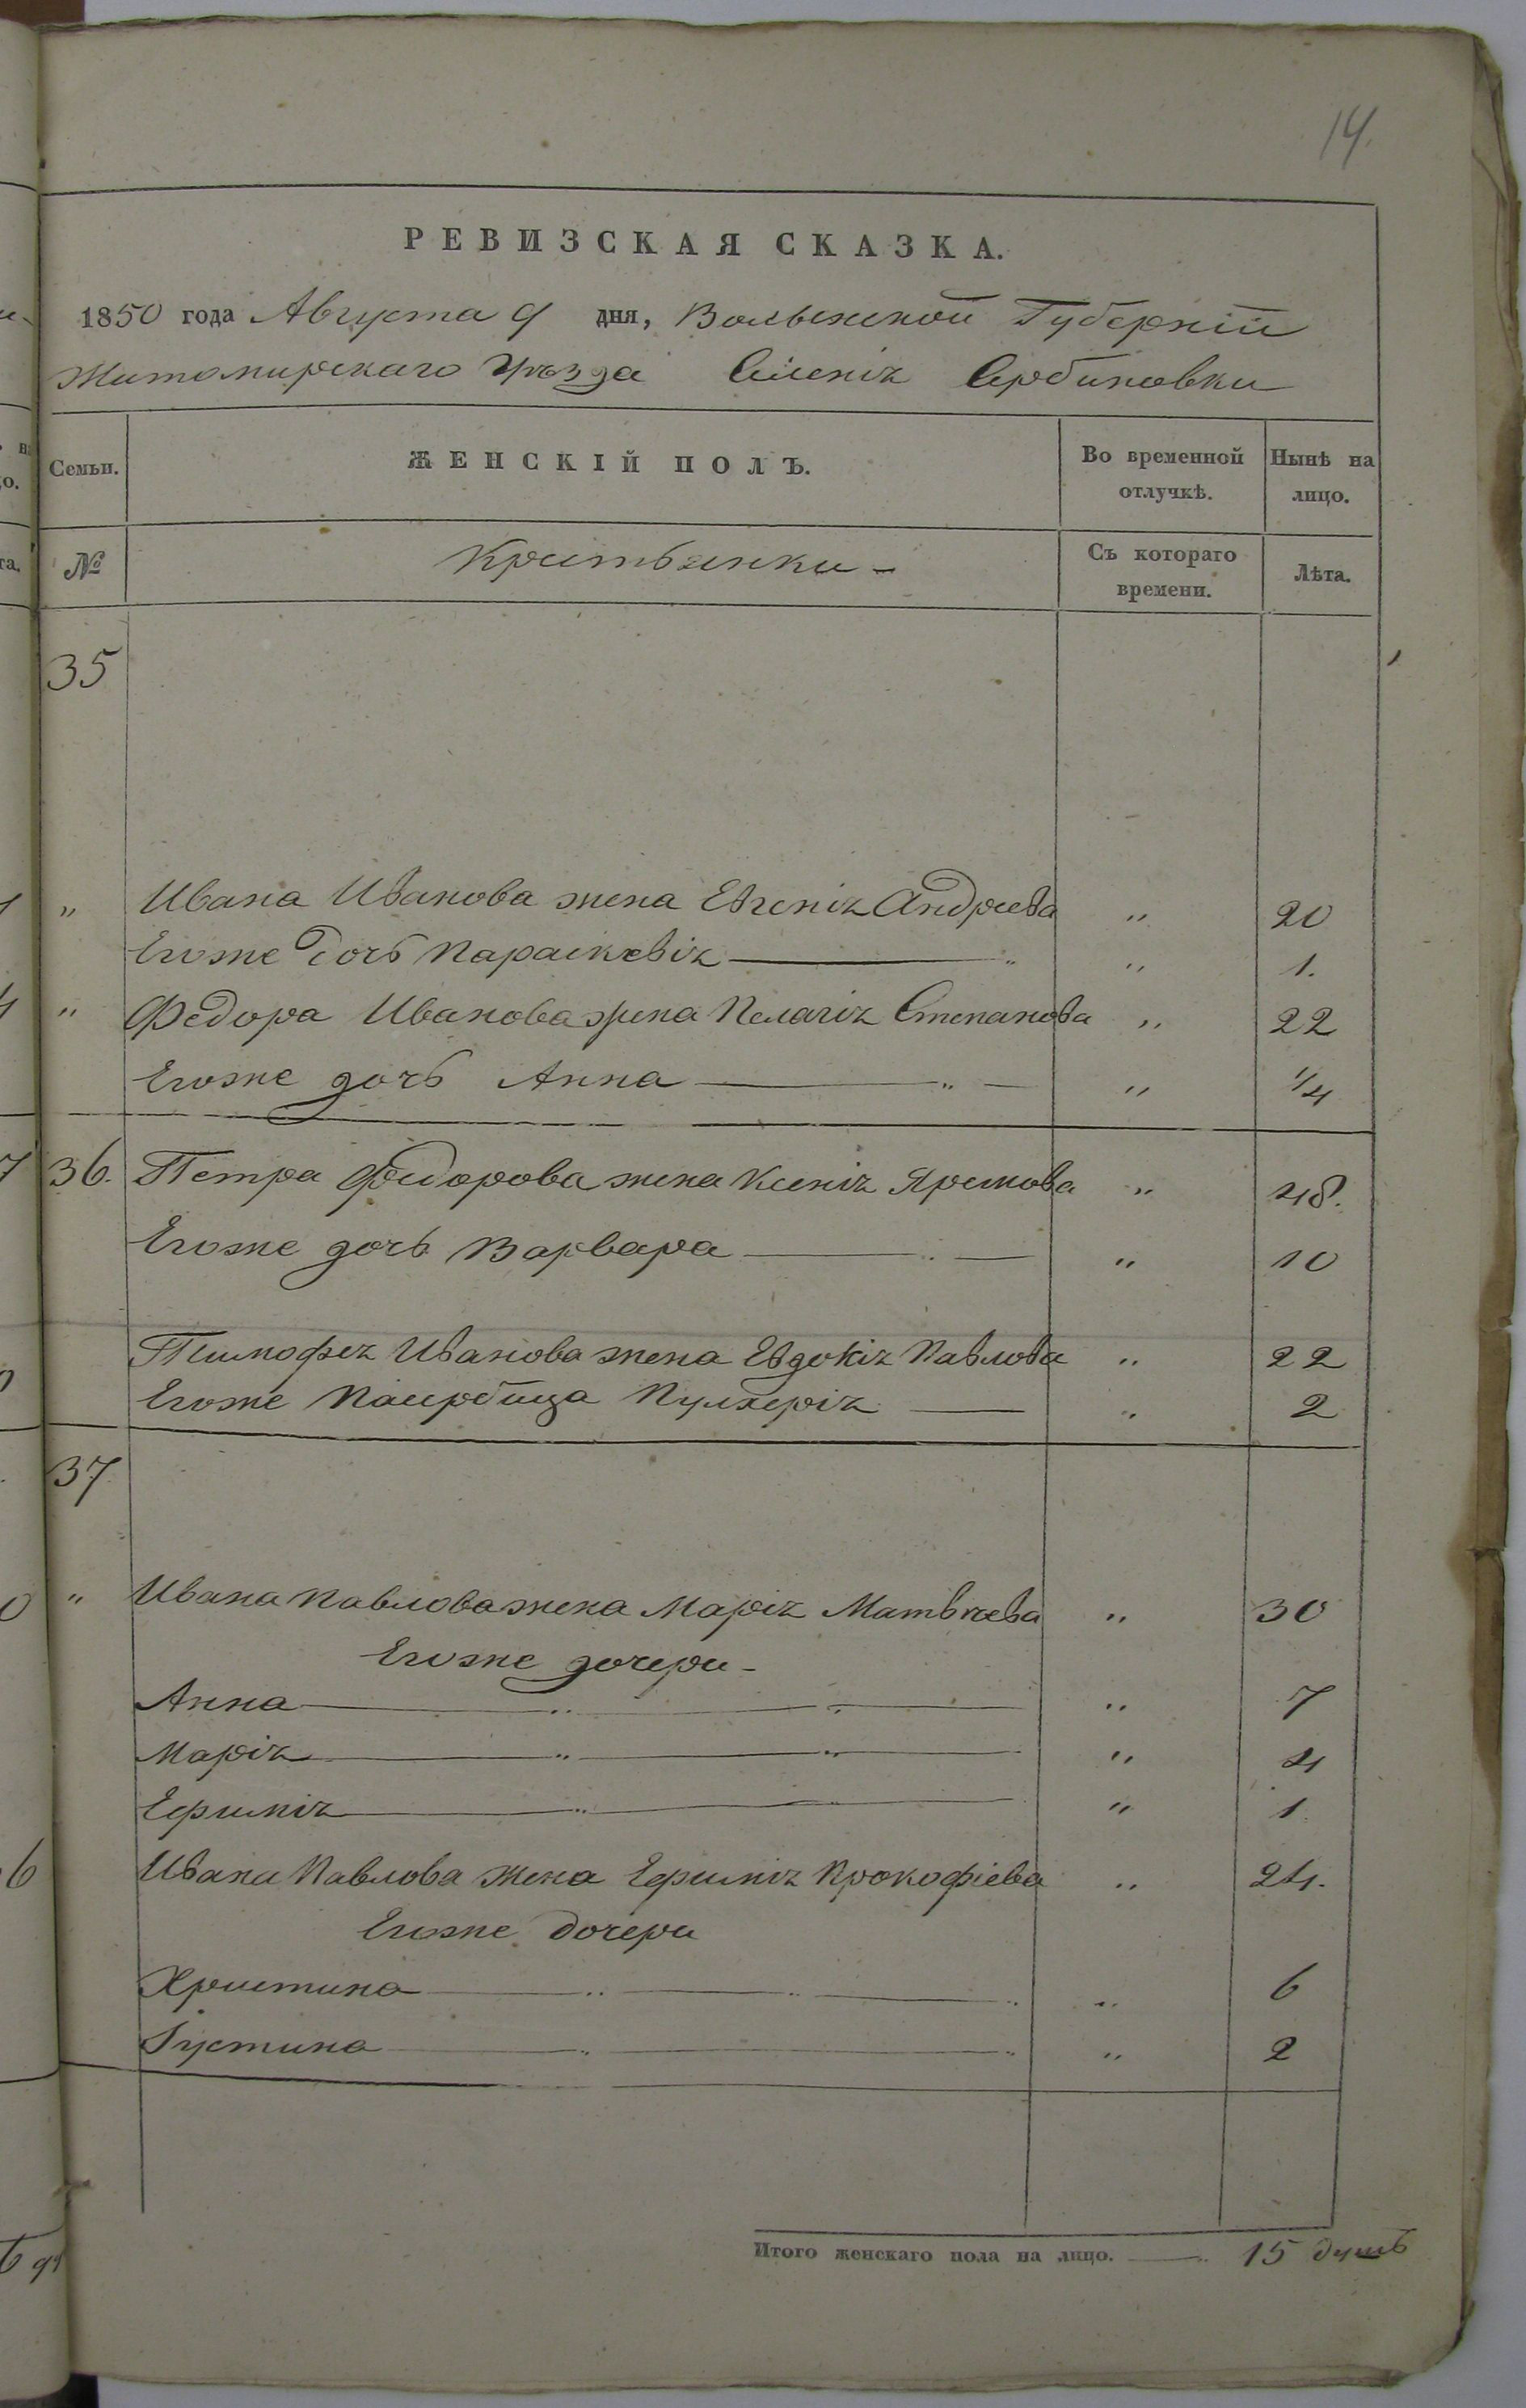 14.
РЕВИЗСКАЯ СКАЗКА.
1850 года Августа 9 дня, Волынской Губерніи
Житомирскаго Уѣзда Селенія Сербиновки
Семьи. ЖЕНСКІЙ ПОЛЪ. Во временной отлучкѣ. Нынѣ на лицо.
№ Крестьянки - Съ котораго времени. Лѣта.
35
" Ивана Иванова жена Евгенія Андреева " 20
Егоже дочь Параскевія " " 1.
" Федора Иванова жена Пелагія Степанова " 22
Егоже дочь Анна " " 1/4
36. Петра Федорова жена Ксенія Яремова " 48.
Егоже дочь Варвара " " 10
Тимофея Иванова жена Евдокія Павлова " 22
Егоже Пасербица Пулхерія " 2
37
" Ивана Павлова жена Марія Матвѣева " 30
Егоже дочери -
Анна " " " 7
Марія " " " 4
Ефимія " " " 1.
Ивана Павлова жена Ефимія Прокофіева " 24.
Егоже дочери
Христина " " " " 6
Іустина " " " 2
Итого женскаго пола на лицо. 15 душъ